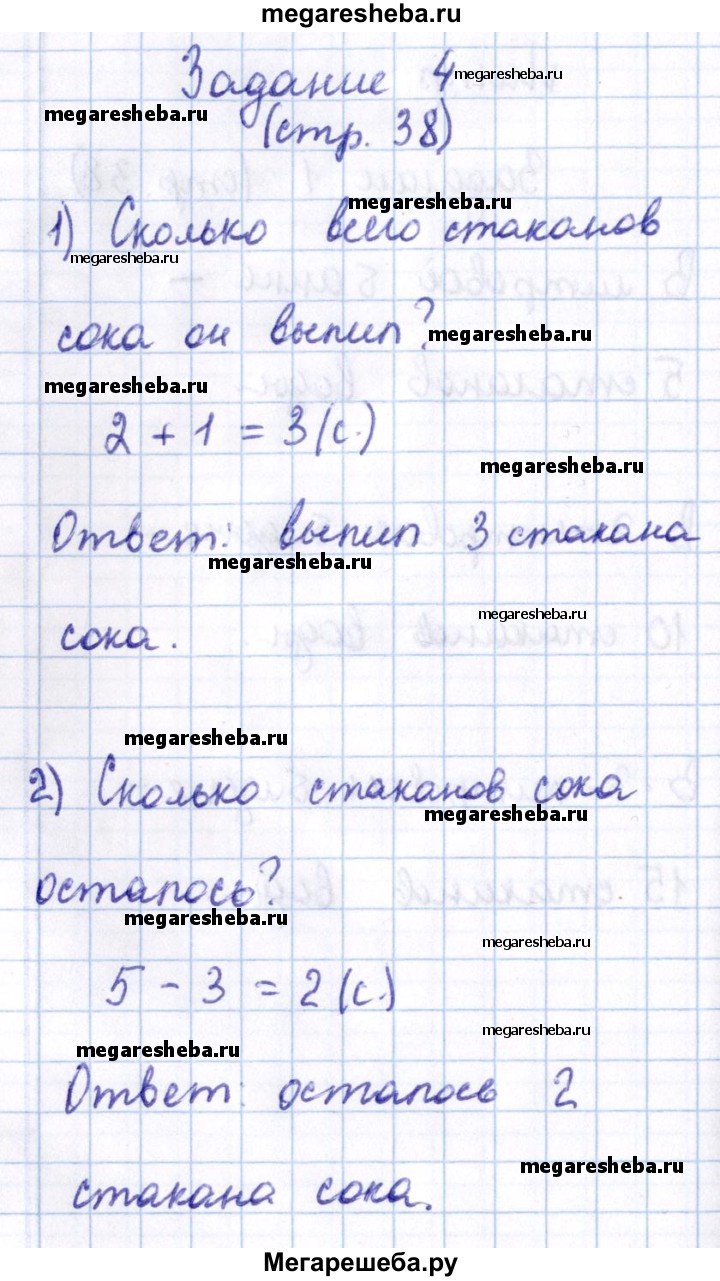 megaresheba.ru
Задание 4 megaresheba.ru
megaresheba.ru
(стр. 38)
megaresheba.ru
1) Сколько всего стаканов
megaresheba.ru
сока он выпил? megaresheba.ru
megaresheba.ru
2 + 1 = 3 (с.)
megaresheba.ru
Ответ: выпил 3 стакана
megaresheba.ru
megaresheba.ru
сока.
megaresheba.ru
2) Сколько стаканов сока
megaresheba.ru
осталось?
megaresheba.ru
megaresheba.ru
5 - 3 = 2 (с.)
megaresheba.ru
megaresheba.ru
Ответ: осталось 2
megaresheba.ru
стакана сока.
Мегарешеба.ру